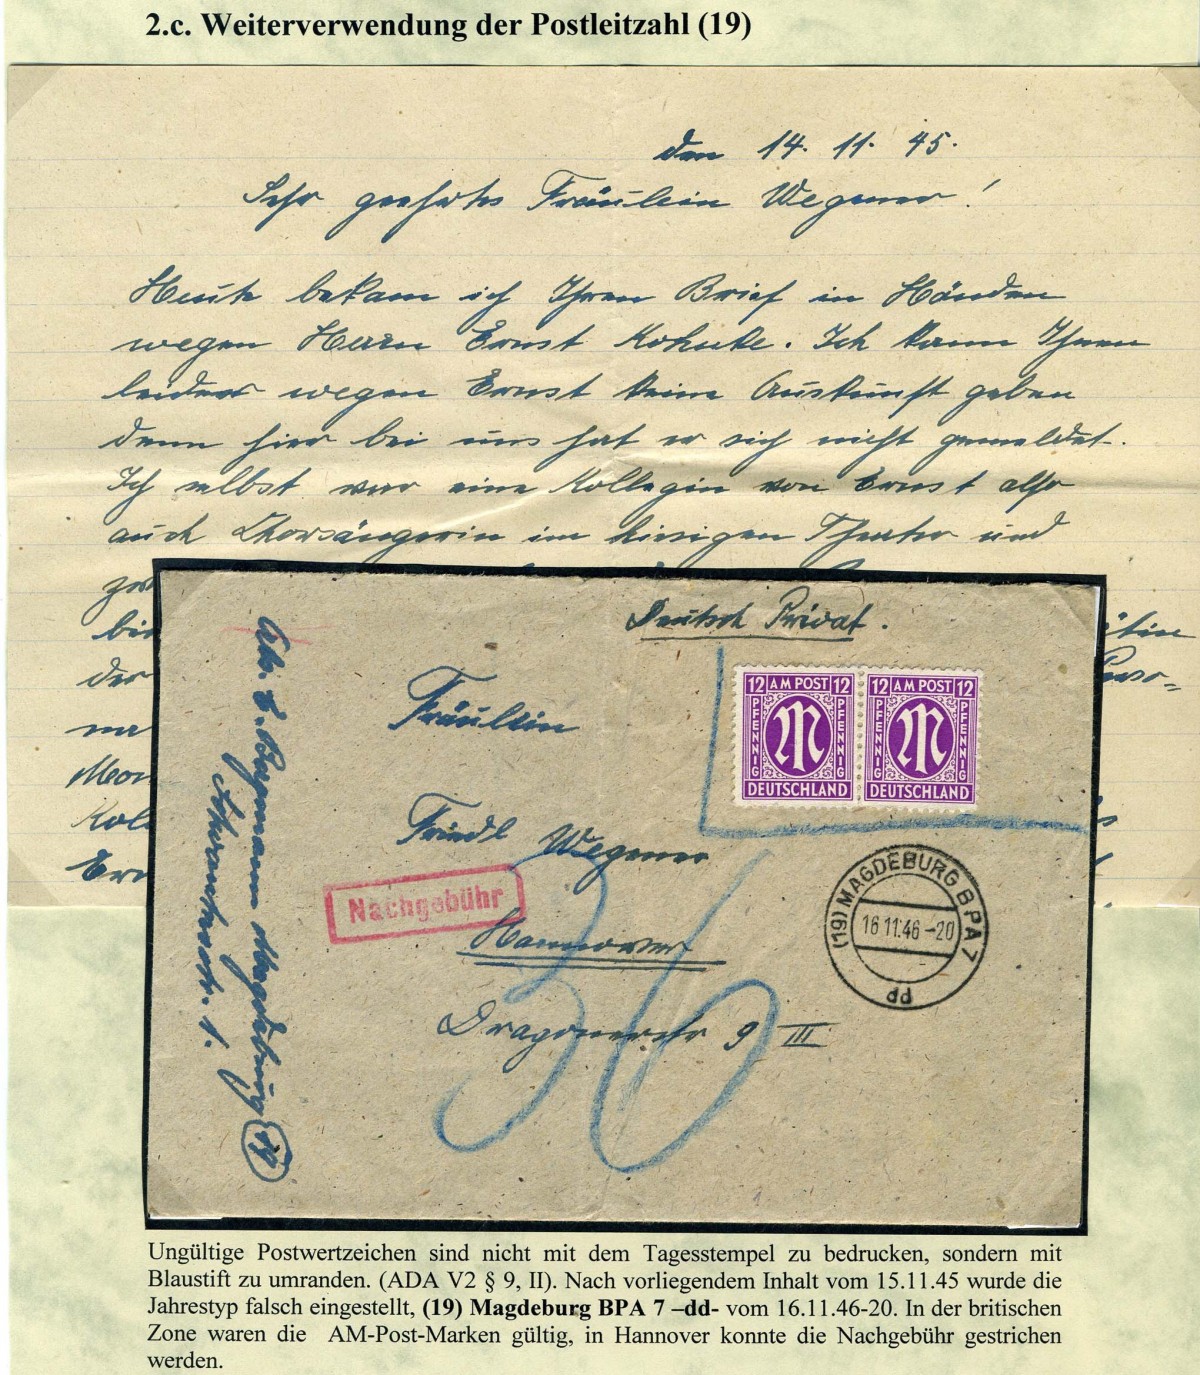 2.c. Weiterverwendung der Postleitzahl (19)
den 14. 11. 45.
Sehr geehrtes Fräulein Wegener!
Heute bekam ich Ihren Brief in Händen
wegen Herrn Ernst Kohnke. Ich kann Ihnen
leider wegen Ernst keine Auskunft geben
denn hier bei uns hat er sich nicht gemeldet.
Ich selbst war eine Kollegin von Ernst also
auch Chorsängerin im hiesigen Theater und
der
Ern
Deutsch Privat.
12 AM POST 12
PFENNIG
PFENNIG
DEUTSCHLAND
12 AM POST 12
PFENNIG
PFENNIG
DEUTSCHLAND
Fräulein
Friedl Wegener
Nachgebühr
Hannover
Dragonerstr 9 III
36
(19) MAGDEBURG BPA 7
16.11.46-20
dd
Abs. E. Bergmann Magdeburg 19
str. 1.
Ungültige Postwertzeichen sind nicht mit dem Tagesstempel zu bedrucken, sondern mit
Blaustift zu umranden. (ADA V2 § 9, II). Nach vorliegendem Inhalt vom 15.11.45 wurde die
Jahrestyp falsch eingestellt, (19) Magdeburg BPA 7 –dd- vom 16.11.46-20. In der britischen
Zone waren die AM-Post-Marken gültig, in Hannover konnte die Nachgebühr gestrichen
werden.